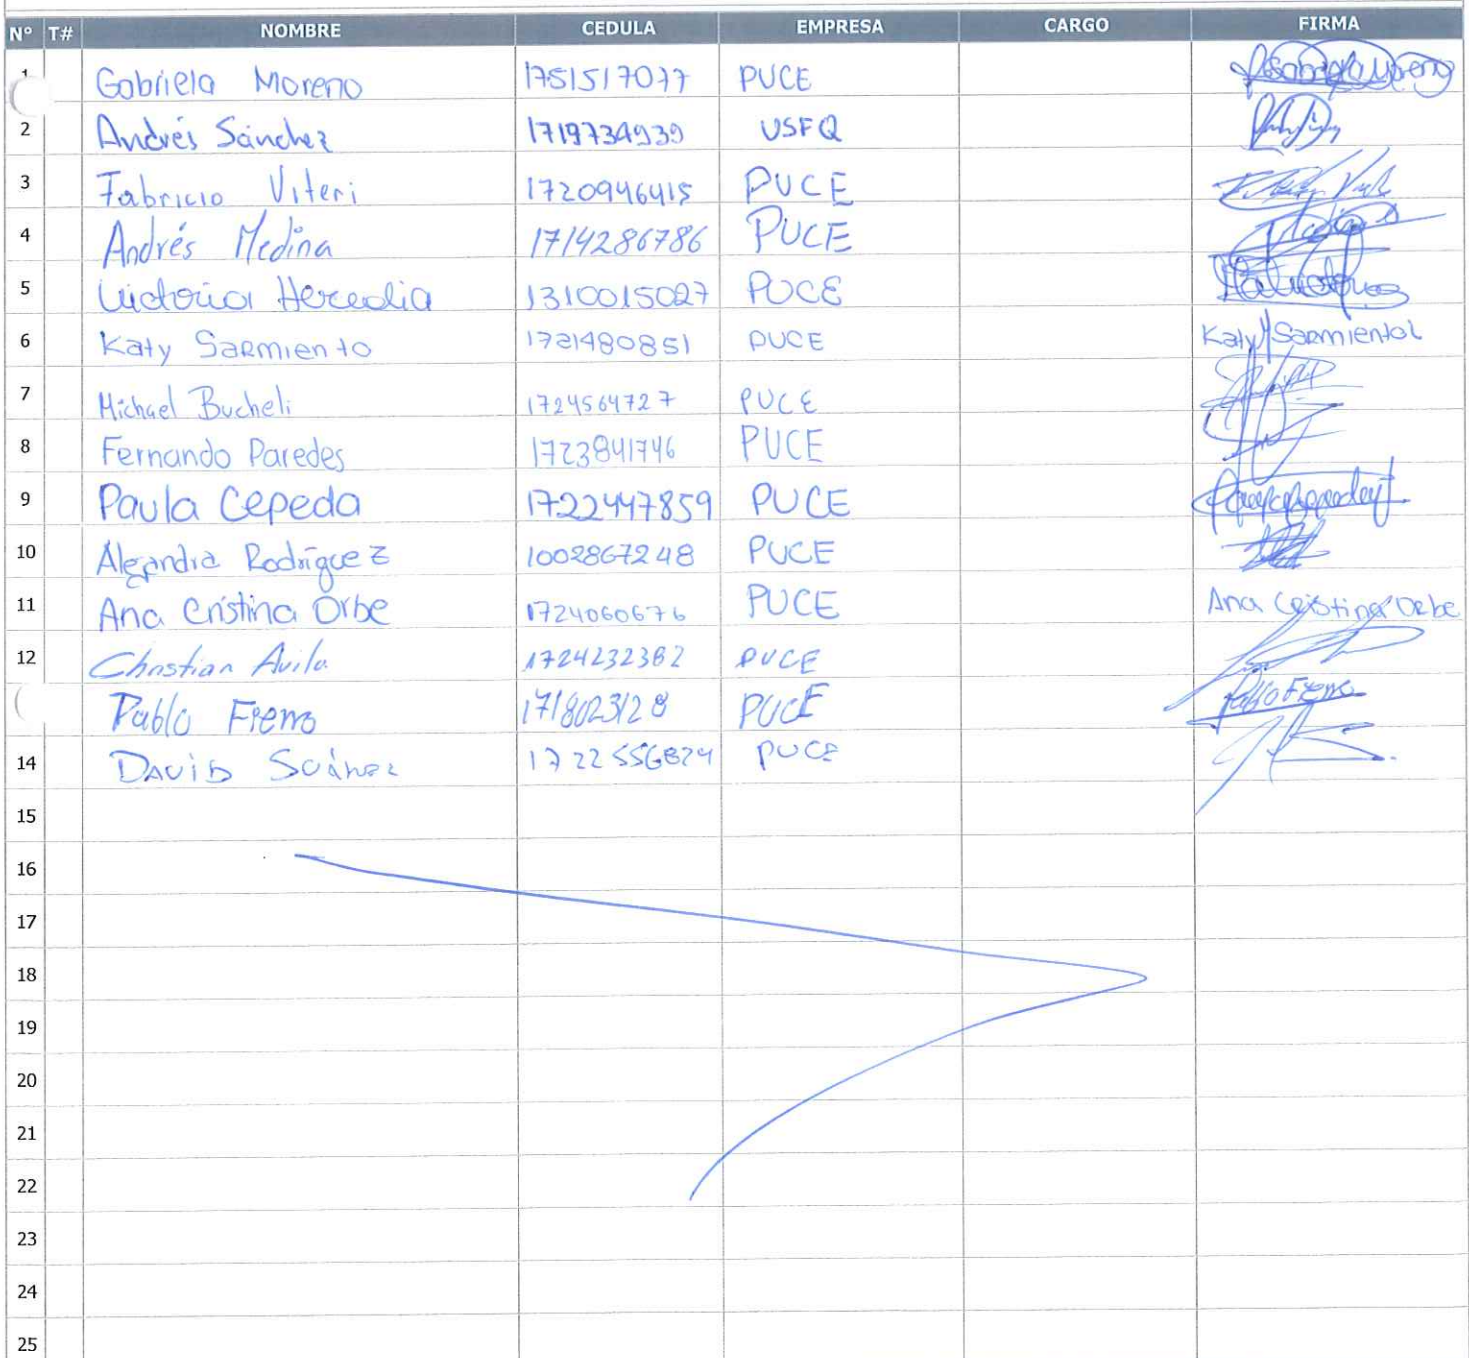 N° T# NOMBRE CEDULA EMPRESA CARGO FIRMA
1 Gabriela Moreno 1751517077 PUCE
2 Andrés Sánchez 1719734939 USFQ
3 Fabricio Viteri 1720946415 PUCE
4 Andrés Medina 1714286786 PUCE
5 Victoria Heredia 1310015027 PUCE
6 Katy Sarmiento 1721480851 PUCE Katy Sarmiento
7 Michael Bucheli 1724564727 PUCE
8 Fernando Paredes 1723841746 PUCE
9 Paula Cepeda 1722447859 PUCE
10 Alejandra Rodríguez 1002867248 PUCE
11 Ana Cristina Orbe 1724060676 PUCE Ana Cristina Orbe
12 Christian Avila 1724232382 PUCE
Pablo Fierro 1718023128 PUCE Pablo Fierro
14 David Suárez 1722556824 PUCE
15
16
17
18
19
20
21
22
23
24
25